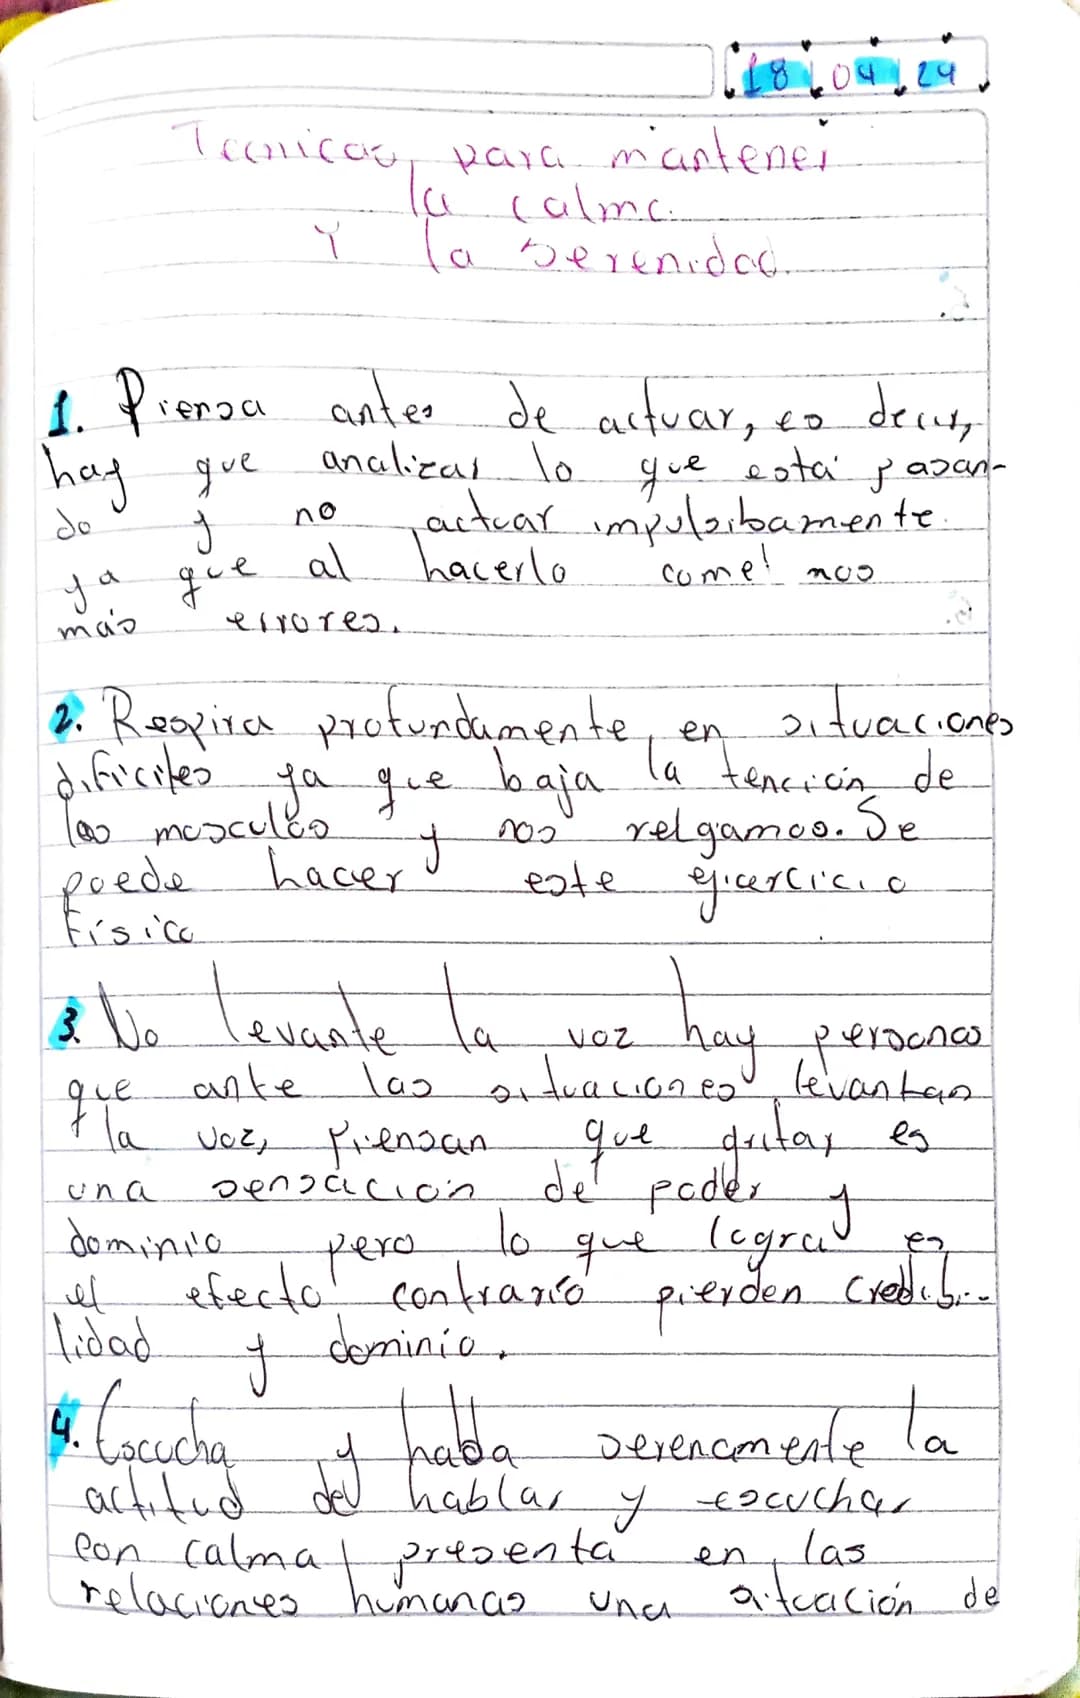 18 04 24
Tecnicas para mantener
la calma
Y la serenidad.
1. Piensa antes de actuar, es decir,
hay que analizar lo que está pasan-
do y no actuar impulsibamente
ya que al hacerlo comet mos
más errores.
2. Respira profundamente en situaciones
difíciles ya que baja la tención de
los musculos y nos relgamos. Se
puede hacer este ejicercicio
Físico
3. No levante la voz hay personas
que ante las situaciones levantan
la voz, piensan que gritar es
una sensación de poder y
dominio pero lo que logra es
el efecto contrario pierden credibi-
lidad y dominio.
4. Escucha y habla serenamente la
actitud del hablar y escuchar
con calma presenta en las
relaciones humanas una situación de